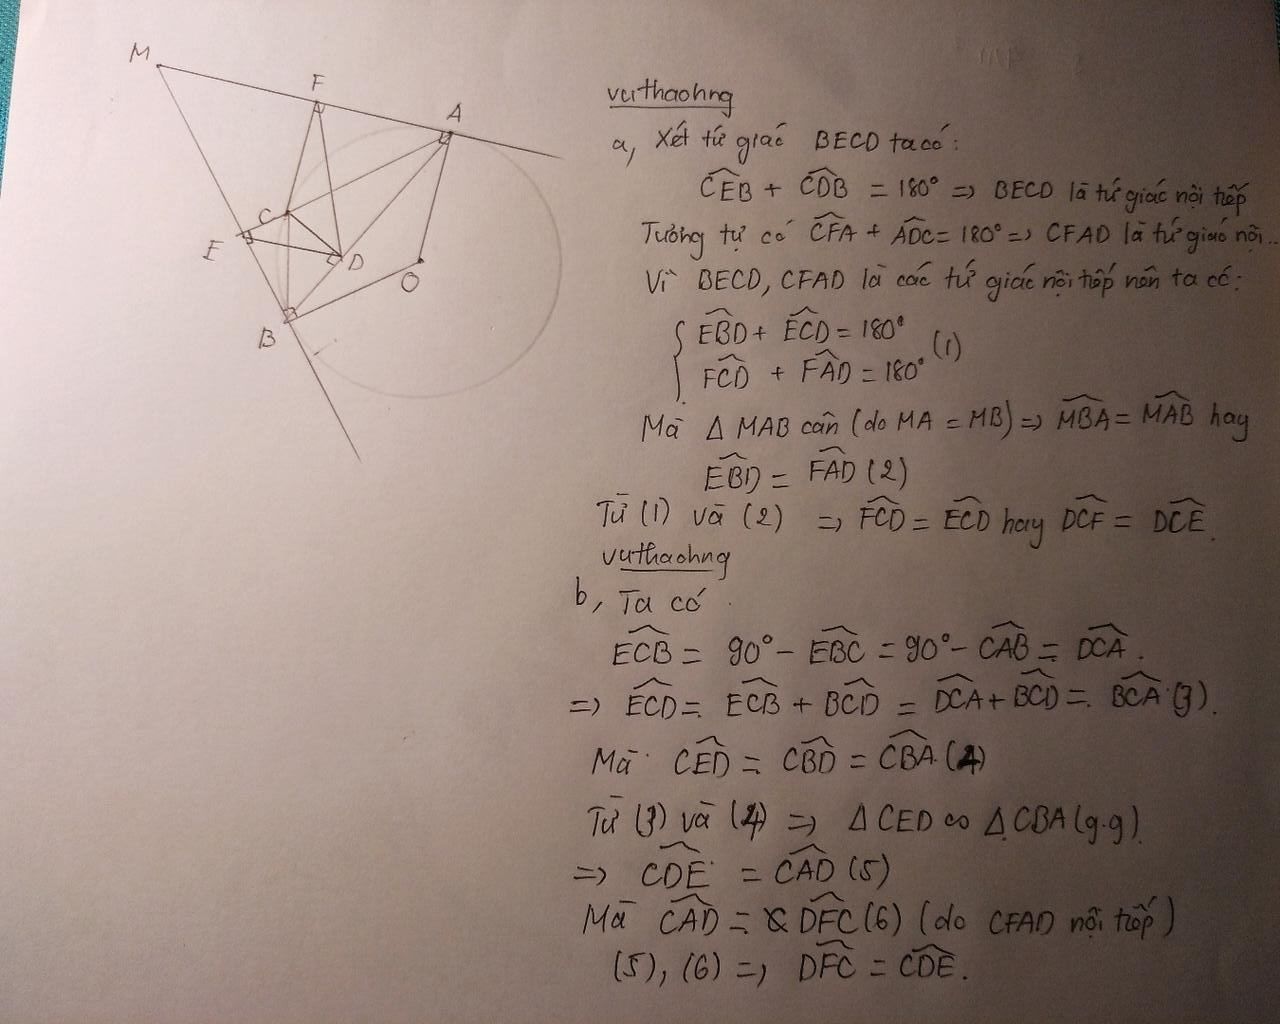 M
F
A
C
E
D
O
B
vuthaohng
a, Xét tứ giác BECD ta có:
\widehat{CEB} + \widehat{CDB} = 180° => BECD là tứ giác nội tiếp
Tương tự có \widehat{CFA} + \widehat{ADC} = 180° => CFAD là tứ giác nội...
Vì BECD, CFAD là các tứ giác nội tiếp nên ta có:
\widehat{EBD} + \widehat{ECD} = 180°
(1)
\widehat{FCD} + \widehat{FAD} = 180°
Mà Δ MAB cân (do MA = MB) => \widehat{MBA} = \widehat{MAB} hay
\widehat{EBD} = \widehat{FAD} (2)
Từ (1) và (2) => \widehat{FCD} = \widehat{ECD} hay \widehat{DCF} = \widehat{DCE}.
vuthaohng
b, Ta có
\widehat{ECB} = 90° - \widehat{EBC} = 90° - \widehat{CAB} = \widehat{DCA}.
=> \widehat{ECD} = \widehat{ECB} + \widehat{BCD} = \widehat{DCA} + \widehat{BCD} = \widehat{BCA} (3).
Mà \widehat{CED} = \widehat{CBD} = \widehat{CBA} (4)
Từ (3) và (4) => Δ CED ∽ Δ CBA (g.g)
=> \widehat{CDE} = \widehat{CAD} (5)
Mà \widehat{CAD} = \widehat{DFC} (6) (do CFAD nội tiếp)
(5), (6) => \widehat{DFC} = \widehat{CDE}.